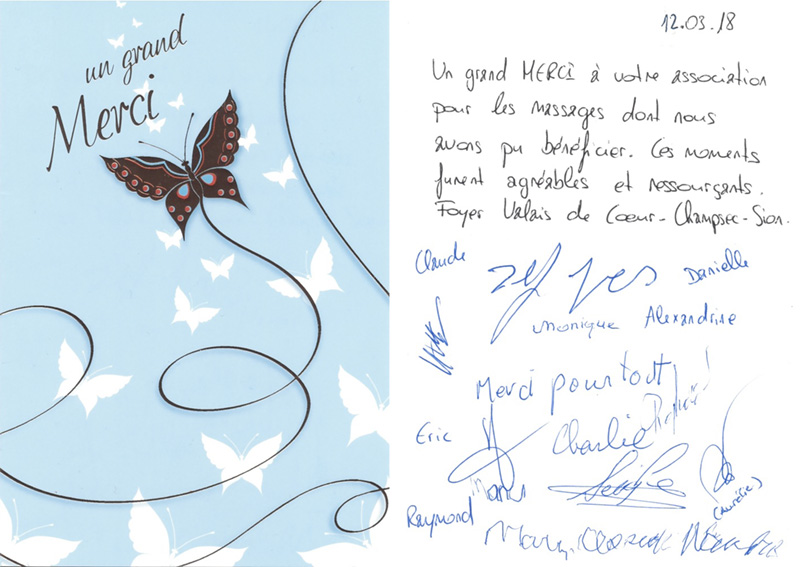 un grand
Merci
12.03.18
Un grand MERCI à votre association
pour les massages dont nous
avons pu bénéficier. Ces moments
furent agréables et ressourçants.
Foyer Valais de Coeur - Champsec - Sion.
Claude
Yves
Danielle
Monique Alexandrine
Merci pour tout
Eric
Charlie
(Aurélie)
Raymond